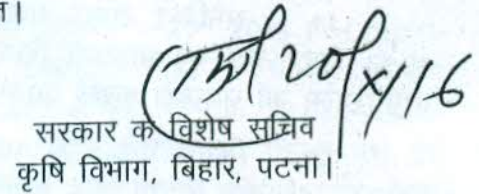 त।
20/x/16
सरकार के विशेष सचिव
कृषि विभाग, बिहार, पटना।